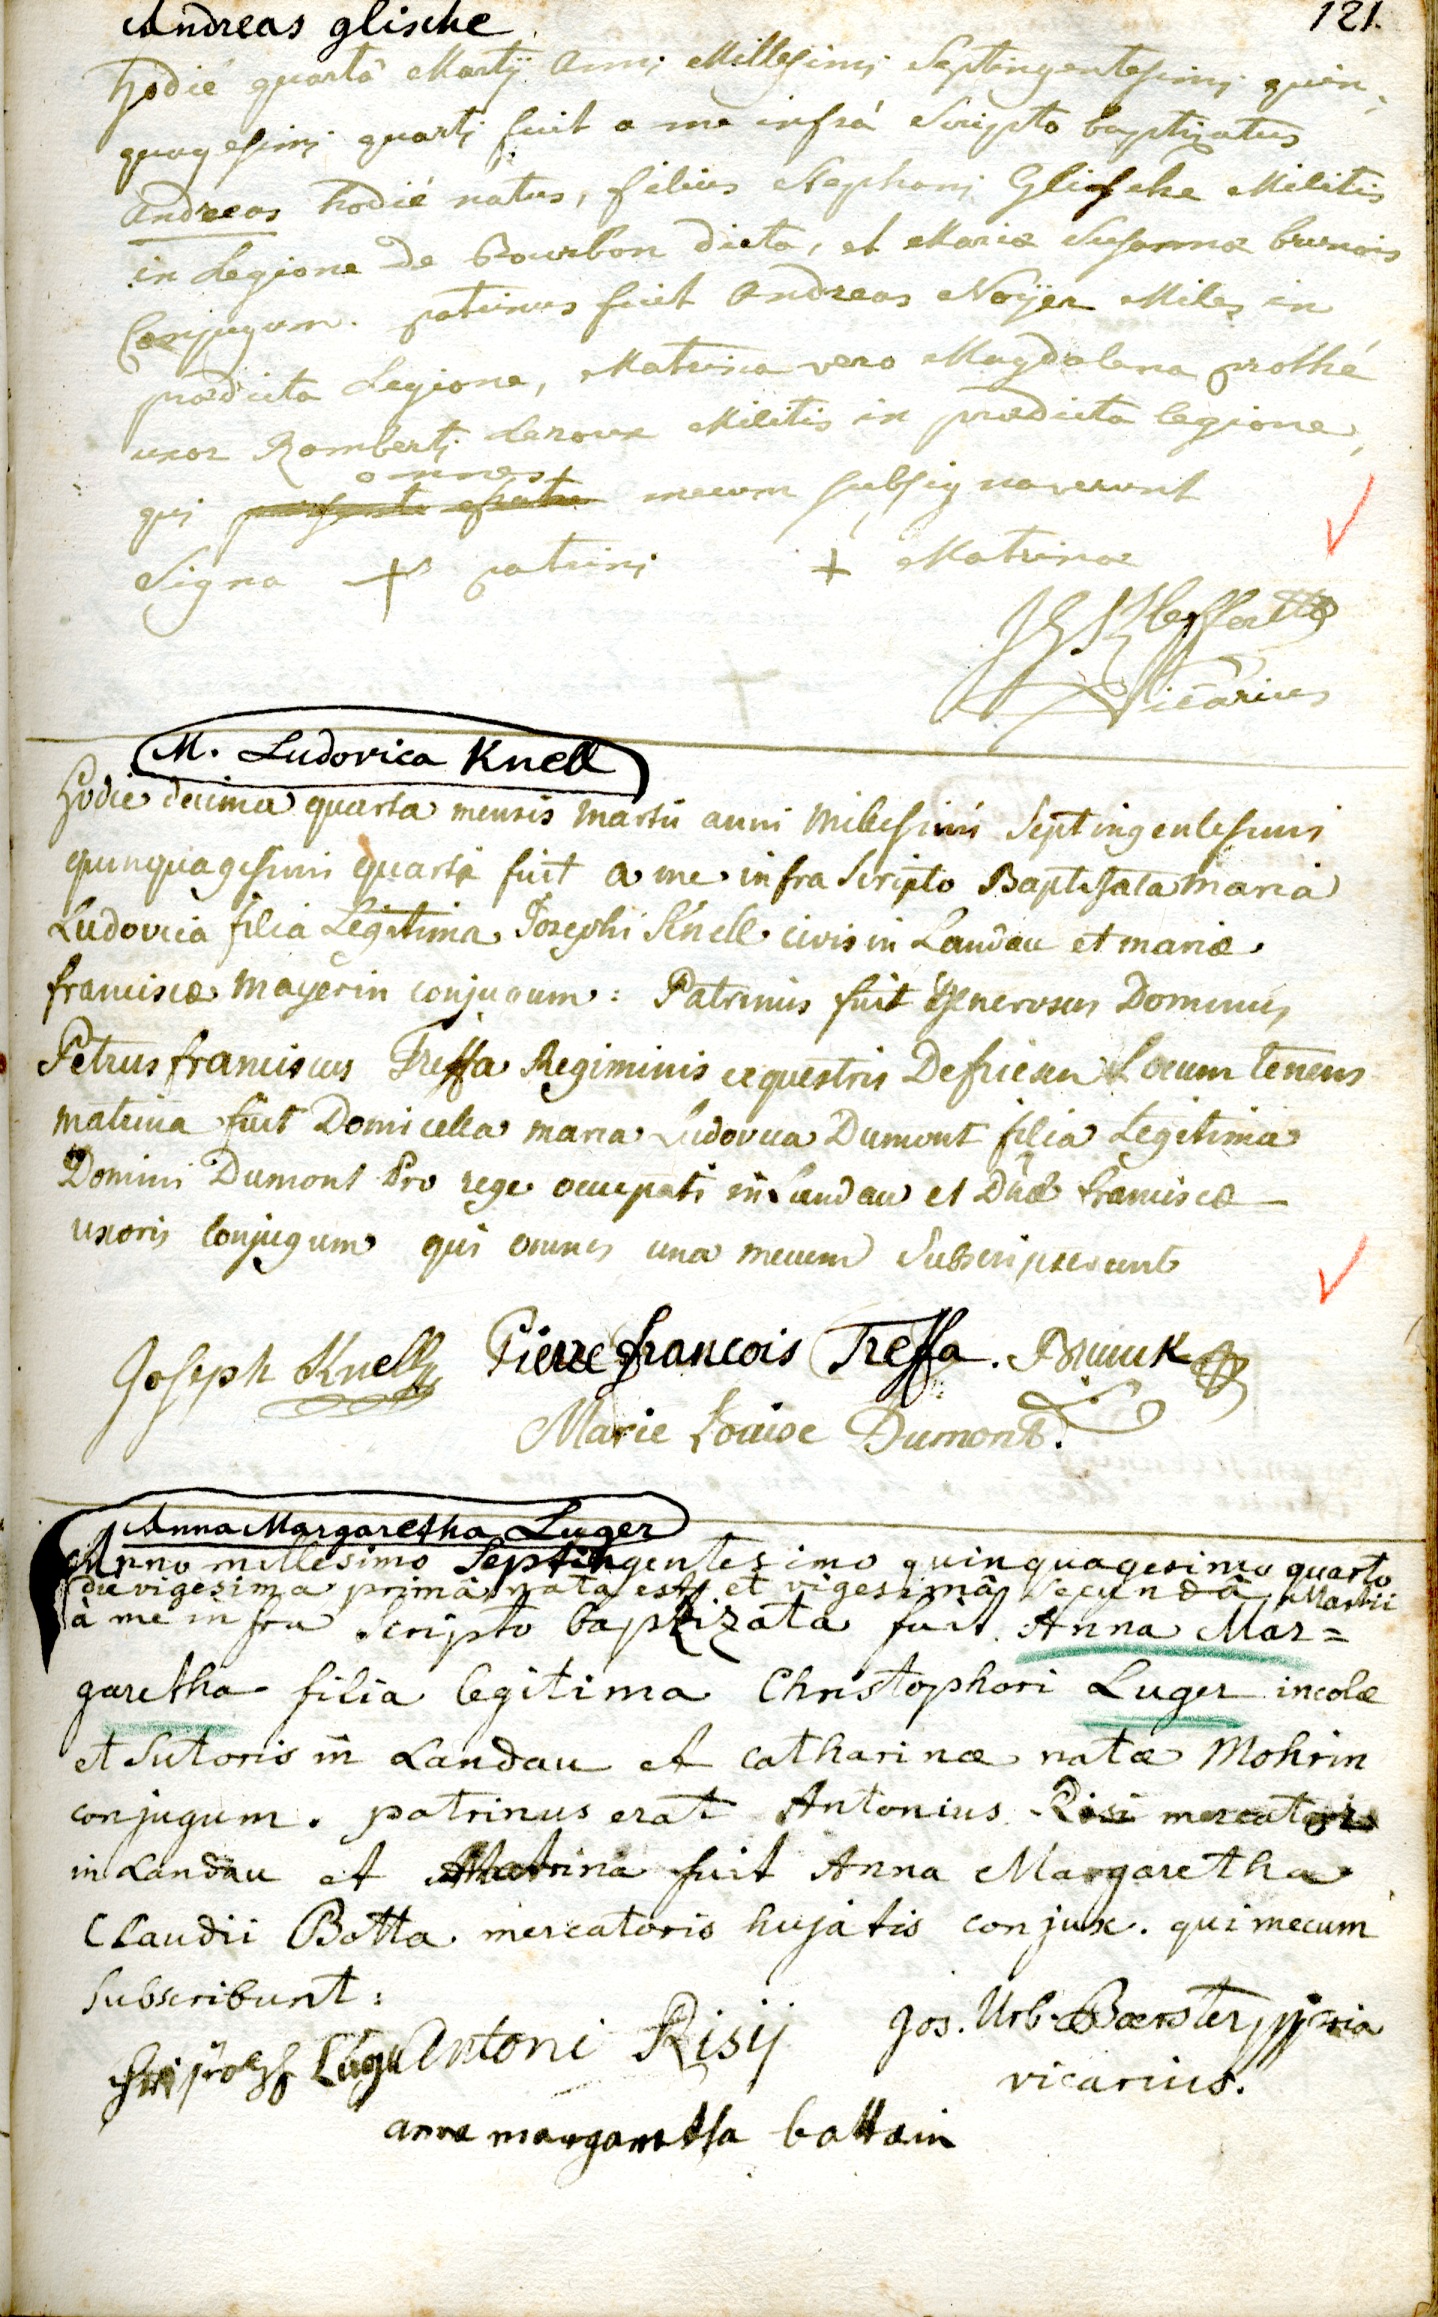 Andreas glische
121.
hodié quartâ Martÿ Anni Millesimi Septingentesimi quin-
quagesimi quarti fuit a me infrá Scripto baptizatus
Andreas hodié natus, filius Stephani Glischke Militis
in Legione de Bourbon dicta, et Mariæ Susannæ brunois
Conjugum. patrinus fuit Andreas Noÿer Miles in
prædicta Legione, Matrina vero Magdalena prothé
uxor Romberti Leroux Militis in prædicta legione,
omnes
qui mecum subsignaverunt
Signa + patrini + Matrinæ
Vicarius
M. Ludovica Knell
Hodie decima quarta mensis martii anni Millesimi Septingentesimi
quinquagesimi quarti fuit a me infra Scripto Baptisata maria
Ludovica filia Legitima Josephi Knell civis in Landau et mariæ
franciscæ Mayerin conjugum: Patrinus fuit Generosus Dominus
Petrus franciscus Treffa Regiminis equestris Defriesen Locum tenens
matrina fuit Domicella maria Ludovica Dumont filia Legitima
Domini Dumont Pro rege occupati in Landau et Dnæ franciscæ
uxoris Conjugum qui omnes una mecum Subscripserunt
Joseph Knell Pierre françois Treffa. Brunck
Marie Louise Dumont.
Anna Margaretha Luger
Anno millesimo Septingentesimo quinquagesimo quarto
die vigesima primâ nata est, et vigesimâ Secundâ Martii
à me infra Scripto baptizata fuit Anna Mar=
garetha filia legitima Christophori Luger incolæ
et Sutoris in Landau et Catharinæ natæ Mohrin
conjugum. patrinus erat Antonius Risi mercator
in Landau et Matrina fuit Anna Margaretha
Claudii Botta mercatoris hujatis conjux. qui mecum
Subscribunt:
Antoni Risij Jos. Urb. Boerster
vicarius.
anna margaretha bottain